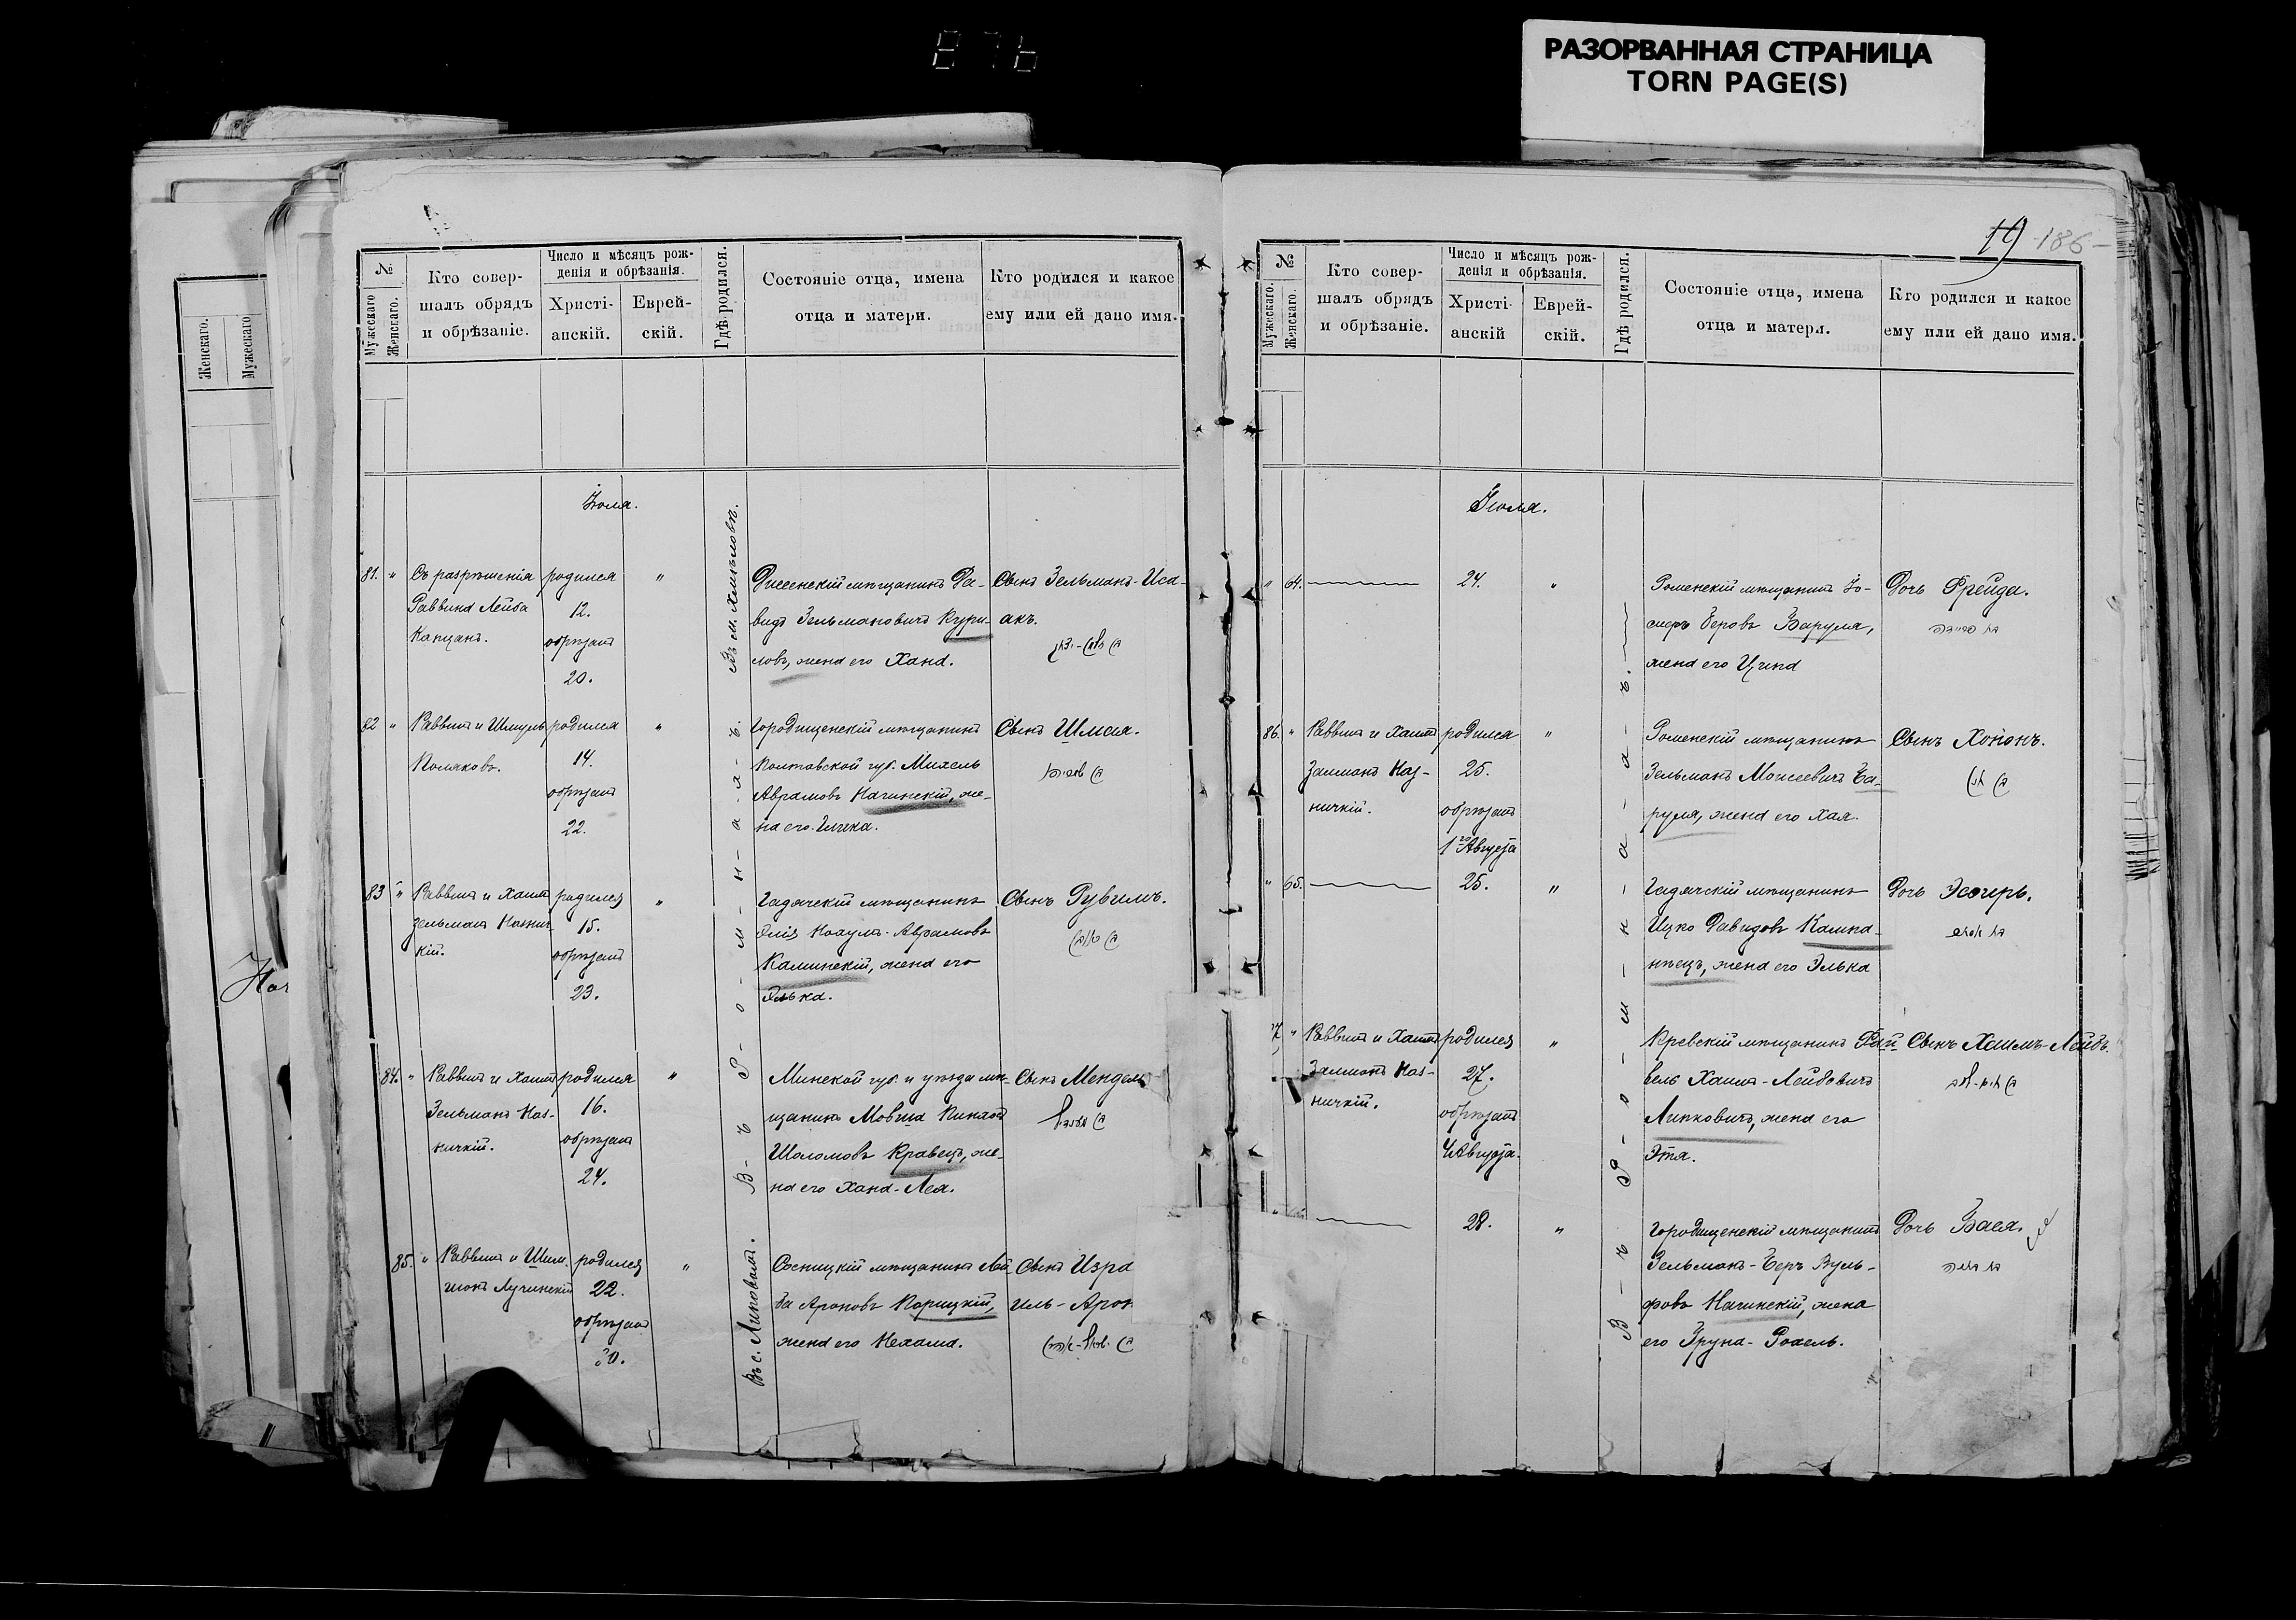 876
РАЗОРВАННАЯ СТРАНИЦА
TORN PAGE(S)
Женскаго.
Мужескаго
№
Мужескаго
Женскаго.
Кто совер-
шалъ обрядъ
и обрѣзаніе.
Число и мѣсяцъ рож-
денія и обрѣзанія.
Христі-
анскій.
Еврей-
скій.
Гдѣ родился.
Состояніе отца, имена
отца и матери.
Кто родился и какое
ему или ей дано имя.
Іюля.
81. " Съ разрѣшенія родился "
Раввина Лейба 12.
Капцанъ. обрѣзанъ
20.
Въ м. Хмѣловѣ.
мѣщанинъ Да-
видъ Зельмановичъ Кури-
ловъ, жена его Хана.
Сынъ Зельманъ-Иса-
акъ.
82 " Раввинъ и Шмуль родился "
Поляковъ. 14.
обрѣзанъ
22.
Городищенскій мѣщанинъ
Полтавской губ. Михель
Аврамовъ Начинскій, же-
на его
Сынъ Шмая.
83 " Раввинъ и Хаимъ родился "
Зельманъ 15.
кій. обрѣзанъ
23.
Гадячскій мѣщанинъ
Элія Нахумъ-Аврамовъ
Калинскій, жена его
Элька.
Сынъ Рувимъ.
84. " Раввинъ и Хаимъ родился "
Зельманъ Каз- 16.
ничкій. обрѣзанъ
24.
Минской губ. и уѣзда мѣ-
щанинъ Мовша Пинхосъ
Шоломовъ Кравецъ, же-
на его Хана-Лея.
Сынъ Мендель
В-ъ Р-о-м-н-а-х-ъ.
85. " Раввинъ и Шим- родился "
шонъ Лучинскій 22.
обрѣзанъ
30.
Въ с. Липовомъ.
Сосницкій мѣщанинъ Лей-
ба Ароновъ Корицкій,
жена его Нехама.
Сынъ Изра
иль-Арон
19 186
№
Мужескаго.
Женскаго.
Кто совер-
шалъ обрядъ
и обрѣзаніе.
Число и мѣсяцъ рож-
денія и обрѣзанія.
Христі-
анскій
Еврей-
скій.
Гдѣ родился.
Состояніе отца, имена
отца и матери.
Кто родился и какое
ему или ей дано имя.
Іюля.
" 64. 24. "
Роменскій мѣщанинъ Іо-
Беровъ Баруля,
жена его Цина
Дочь Фрейда.
86. " Раввинъ и Хаимъ родился "
Залманъ Каз- 25.
ничкій. обрѣзанъ
1го Августа
Роменскій мѣщанинъ
Зельманъ Моисеевичъ Ба-
руля, жена его Хая.
Сынъ Хононъ.
" 65. 25. "
Гадячскій мѣщанинъ
Ицко Давидовъ Кампа-
нѣецъ, жена его Элька
Дочь Эсѳерь.
7 " Раввинъ и Хаимъ родился "
Залманъ Каз- 27.
ничкій. обрѣзанъ
4 Августа.
Кревскій мѣщанинъ Фай-
вель Хаимъ-Лейбовичъ
Липковичъ, жена его
Эта.
Сынъ Хаимъ-Лейбъ.
" 28. "
Городищенскій мѣщанинъ
Зельманъ-Беръ Вуль-
фовъ Начинскій, жена
его Груна-Рохель.
Дочь Бася.
В-ъ Р-о-м-н-а-х-ъ.